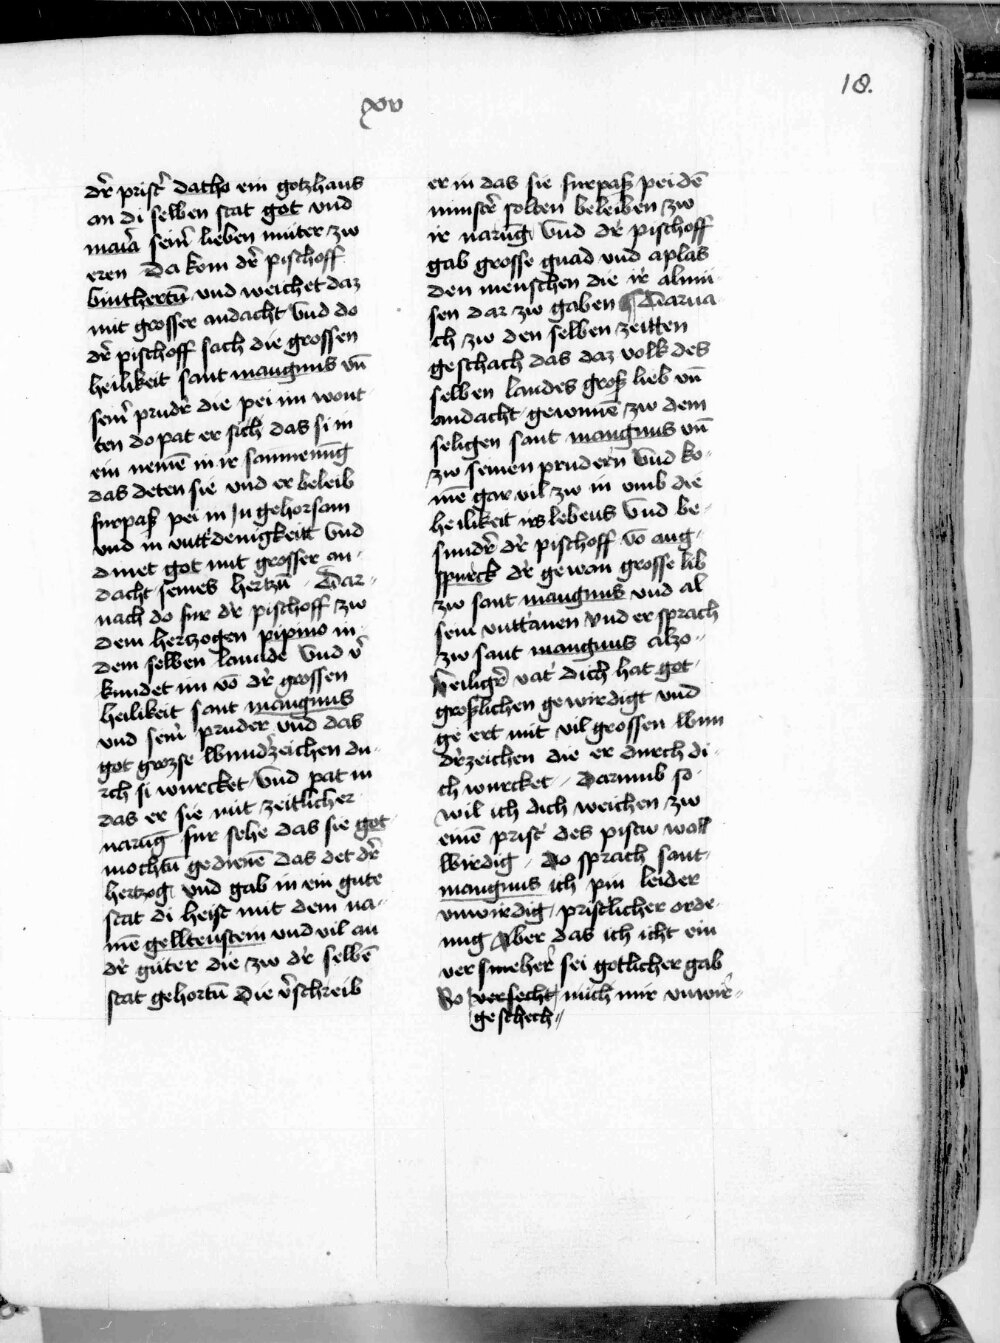 18.
xv
dr̄ prist̄ datho ein gotzhaus
an di selben stat got vnd
maria sein̄ lieben muter zw
eren Da kom dr̄ pischoff
winthertū vnd weichet daz
mit grosser andacht Vnd do
dr̄ pischoff sach die grossen
heilikeit sant mangnus vn̄
sein̄ prudr̄ die pei im wont
ten do pat er sich das si in
ein nemē in ir sammenūg
das deten sie vnd er beleib
furpaß pei in Jn gehorsam
vnd in vntt̄denigkeitt Vnd
dinet got mit grosser an-
dacht seines hertzū Dar-
nach do fur dr̄ pischoff zw
dem hertzogen pipino in
dem selben lannde Vnd v̄
kundet im vō dr̄ grossen
heilikeit sant mangnus
vnd sein̄ pruder vnd das
got grozse wundr̄zeichen du-
rch si wurcket Vnd pat in
das er sie mit zeitlicher
narūg fur sehe das sie got
mochtū gedienē das det dr̄
hertzog vnd gab in ein gute
stat di heist mit dem na-
mē gelltenstein vnd vil an
dr̄ guter die zw dr̄ selbē
stat gehortū Die v̄schreib
er in das sie furpaß pei dē
munstr̄ solten beleiben zw
ir narūg Vnd dr̄ pischoff
gab grosse gnad vnd aplas
den menschen die ir almū
sen dar zw gaben Darna
ch zw den selben zeitten
geschach das daz volk des
selben landes groß lieb vn̄
andacht gewunnē zw dem
seligen sant mangnus vn̄
zw seinen prudern Vnd ko-
mē gar vil zw in vmb die
heilikeit irs lebens Vnd be-
sundr̄ dr̄ pischoff vō aug-
spurck dr̄ gewan grosse lib
zw sant mangnus vnd al
sein vntt̄anen Vnd er sprach
zw sant mangnus alzo
heiligr̄ vat̄ dich hat got
großlichen gewirdigt vnd
ge ert mit vil grossen wun
dr̄zeichen die er durch di-
ch wurcket Darumb so
wil ich dich weichen zw
einē prist̄ des pistu woll
wirdig Do sprach sant
mangnus ich pin leider
vnwirdig pristlicher orde-
nug Aber das ich icht ein
ver smeher̄ sei gotlicher gab
So versecht mich mir vnwir̄-
geschech